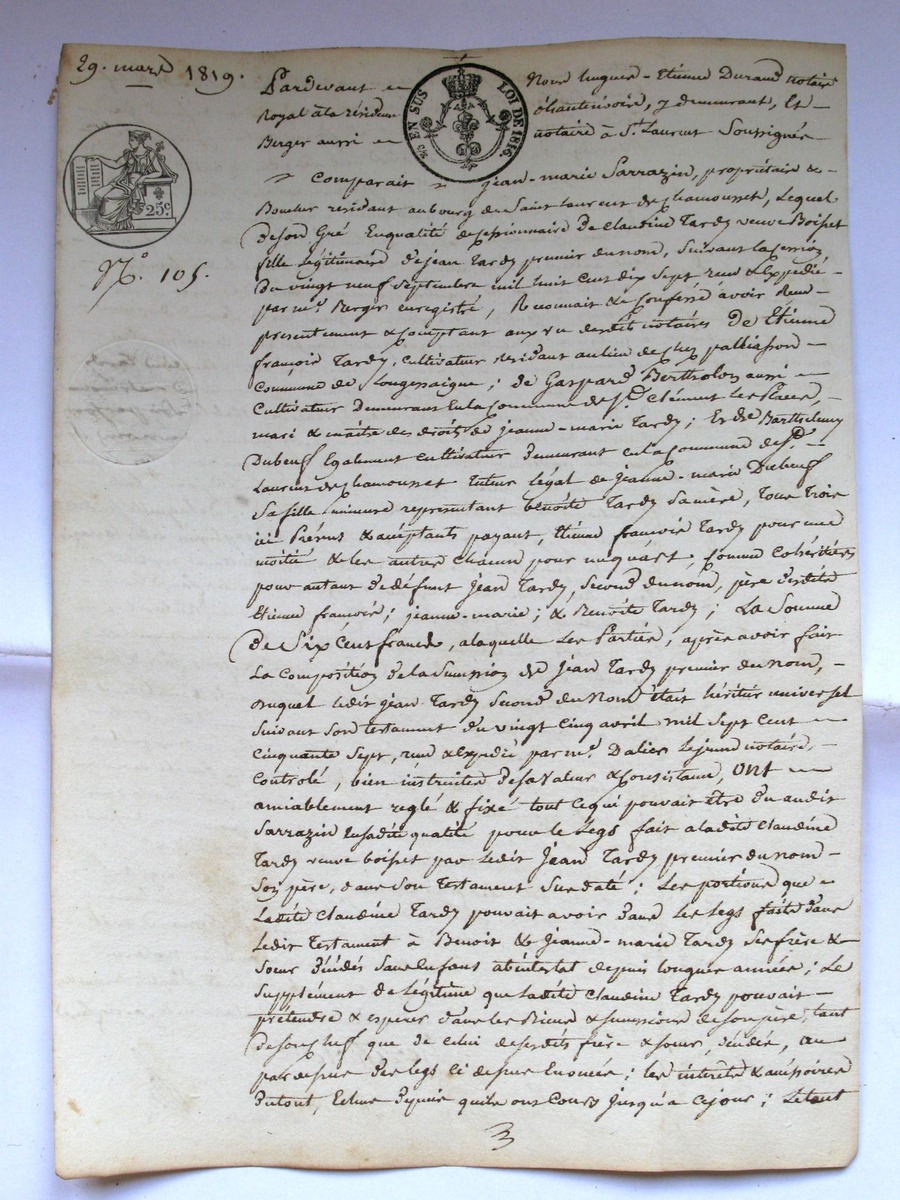 29. mars 1819.
EN SUS LOI DE 1816.
25c
N.o 105.
Pardevant Nous hugues-Etienne Durand notaire
Royal à la résidence chantenoire, y demeurant, Et
Berger aussi notaire à St. Laurent Soussignés
Comparait jean-marie Sarrazin, propriétaire &
Boucher résidant au bourg de Saint Laurent de chamousset, Lequel
de son Gré En qualité de cessionnaire de Claudine Tardy veuve Boisset
fille légitimaire de jean Tardy premier du nom, Suivant la cession
du vingt neuf Septembre mil huit cent dix sept reçue & Expédiée
par me. Berger enregistré, Reconnait & Confesse avoir Reçu
presentement & comptant aux vu desdits notaires De Etienne
françois Tardy, cultivateur résidant au lieu de chez palliasson
commune de Longessaigne; de Gaspard Bertholon aussi
Cultivateur Demeurant En la commune de St. Clément Les places,
mari & maitre des droits de jeanne-marie Tardy; Et de Barthelemy
Dubeuf Egalement cultivateur demeurant en la Commune de St.
Laurent de chamousset tuteur légal de jeanne-marie Dubeuf
Sa fille mineure représentant benoite Tardy Sa mère, Tous Trois
ici Présents & acceptants payant, Etienne françois Tardy pour une
moitié & les autres chacun pour un quart, comme Cohéritiers
pour autant de défunt Jean Tardy, Second du nom, père desdits
Etienne françois; jeanne-marie; & Benoite Tardy; La Somme
de Six Cent francs, a laquelle Les Parties, après avoir fait
La Composition de la Succession de Jean Tardy premier du nom,
duquel ledit jean Tardy Second du Nom était héritier universel
Suivant Son testament du vingt cinq avril mil Sept Cent
Cinquante Sept, reçu & Expédié par me. Dalier Lejeune notaire,
Controlé, bien instruites de sa valeur & Consistance, ont
amiablement reglé & fixé tout ce qui pouvait être du audit
Sarrazin En sadite qualité pour le Legs fait a ladite Claudine
Tardy veuve boisset par ledit Jean Tardy premier du nom
Son père, dans Son Testament Susdaté; Les portions que
Ladite Claudine Tardy pouvait avoir dans Les Legs faits dans
Ledit Testament à Benoit & Jeanne-marie Tardy Ses frère &
Soeur décédés Sans Enfans abintestat depuis longues années; Le
Supplément de Légitime que ladite Claudine Tardy pouvait
prétendre & espérer dans les Biens & successions de son père, tant
de son chef que de celui desdits frère & Soeur, décédés, au
par dessus des legs Ci dessus Enoncés; les intérets & accessoires
du tout, Echus depuis qu'ils ont Cours jusqu'à ce jour; Le tout